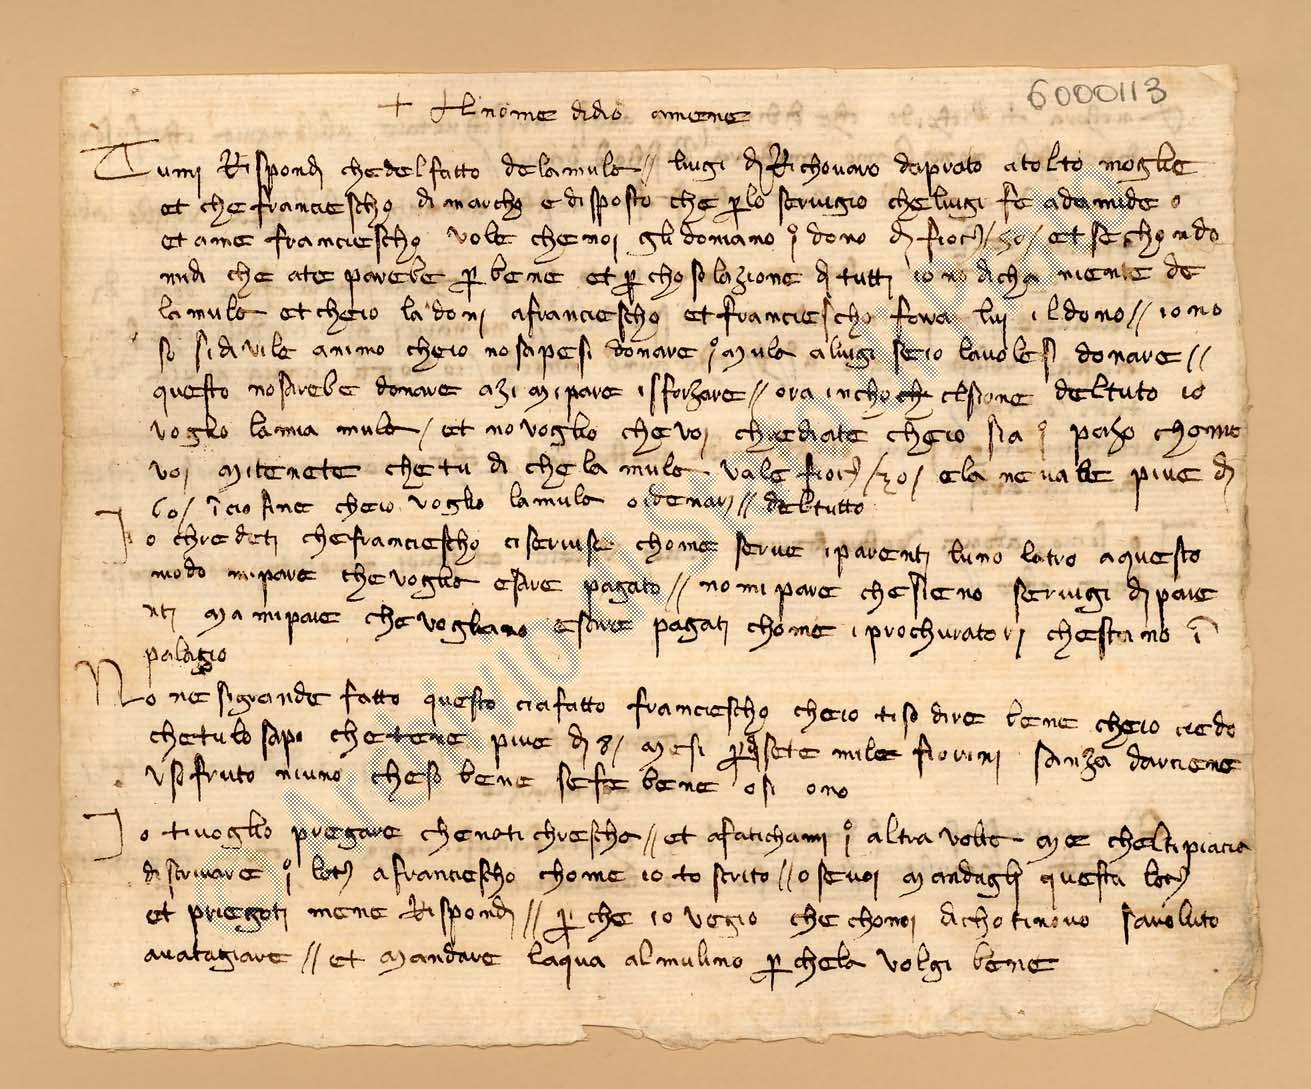 6000113
+ Al nome di dio amene
Tu mi Rispondi che del fatto de la mula // luigi di Richovaro da prato a tolto moglie
et che francieschο di marcho e disposto che p lo servigio che luigi fe
et a me francieschο vole che noi gli doniamo 1º dono di fior 50 / et sechondo
mi di che a te parebe p bene et p chosolazione di tutti io no dicha niente de
la mula et che io la doni a francieschο et francieschο fara lui il dono // io no
so si di vile animo che io no sapesi donare 1º mula a luigi se io lavolesi donare //
questo no sarebe donare azi mi pare isforzare // ora in del tuto io
voglio la mia mula / et no voglio che voi chrediate che io sia 1º chome
voi mi tenete che tu di che la mula vale fior / 70 / ela ne vale piue di
60 / i cio fine che io voglio la mula o i denari // del tutto
Io chredeti che francieschο ci servise chome serve i parenti luno latro a questo
modo mi pare che voglia esare pagato // no mi pare che sieno servigi di pare
nti ma mi pare che vogliano esare pagati chome i prochuratori che stano i
palagio
No ne si grande fatto questo cia fatto francieschο che io ti so dire bene che io credo
che tu lo sapi che tene piue di 8 / mesi p sete mila fiorini sanza darciene
usofruto niuno che so bene se fe bene o si o no
Io ti voglio pregare che no ti chrescha // et afatichami 1º altra volta me che ti piacia
di scrivare 1º letº a francieschο chome io to scrito // o se voi mandagli questa letº
et priegoti mene Rispondi // p che io vegio che cho noi di chotinovo savoluto
avatagiare // et mandare laqua al mulino p che la volgi bene